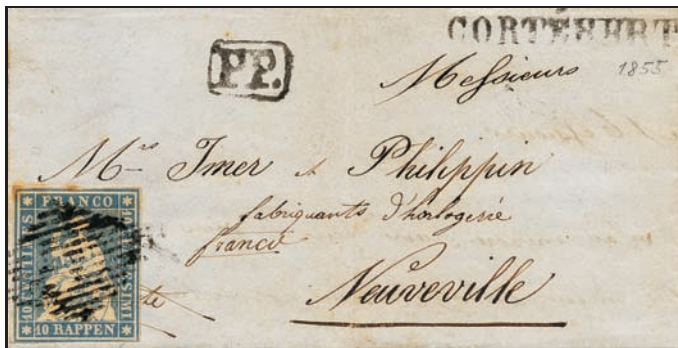 CORTÉBERT
PP.
Messieurs 1855
Mrs Imer & Philippin
fabriquants d'horlogerie
franco
Neuveville
FRANCO
10 RAPPEN